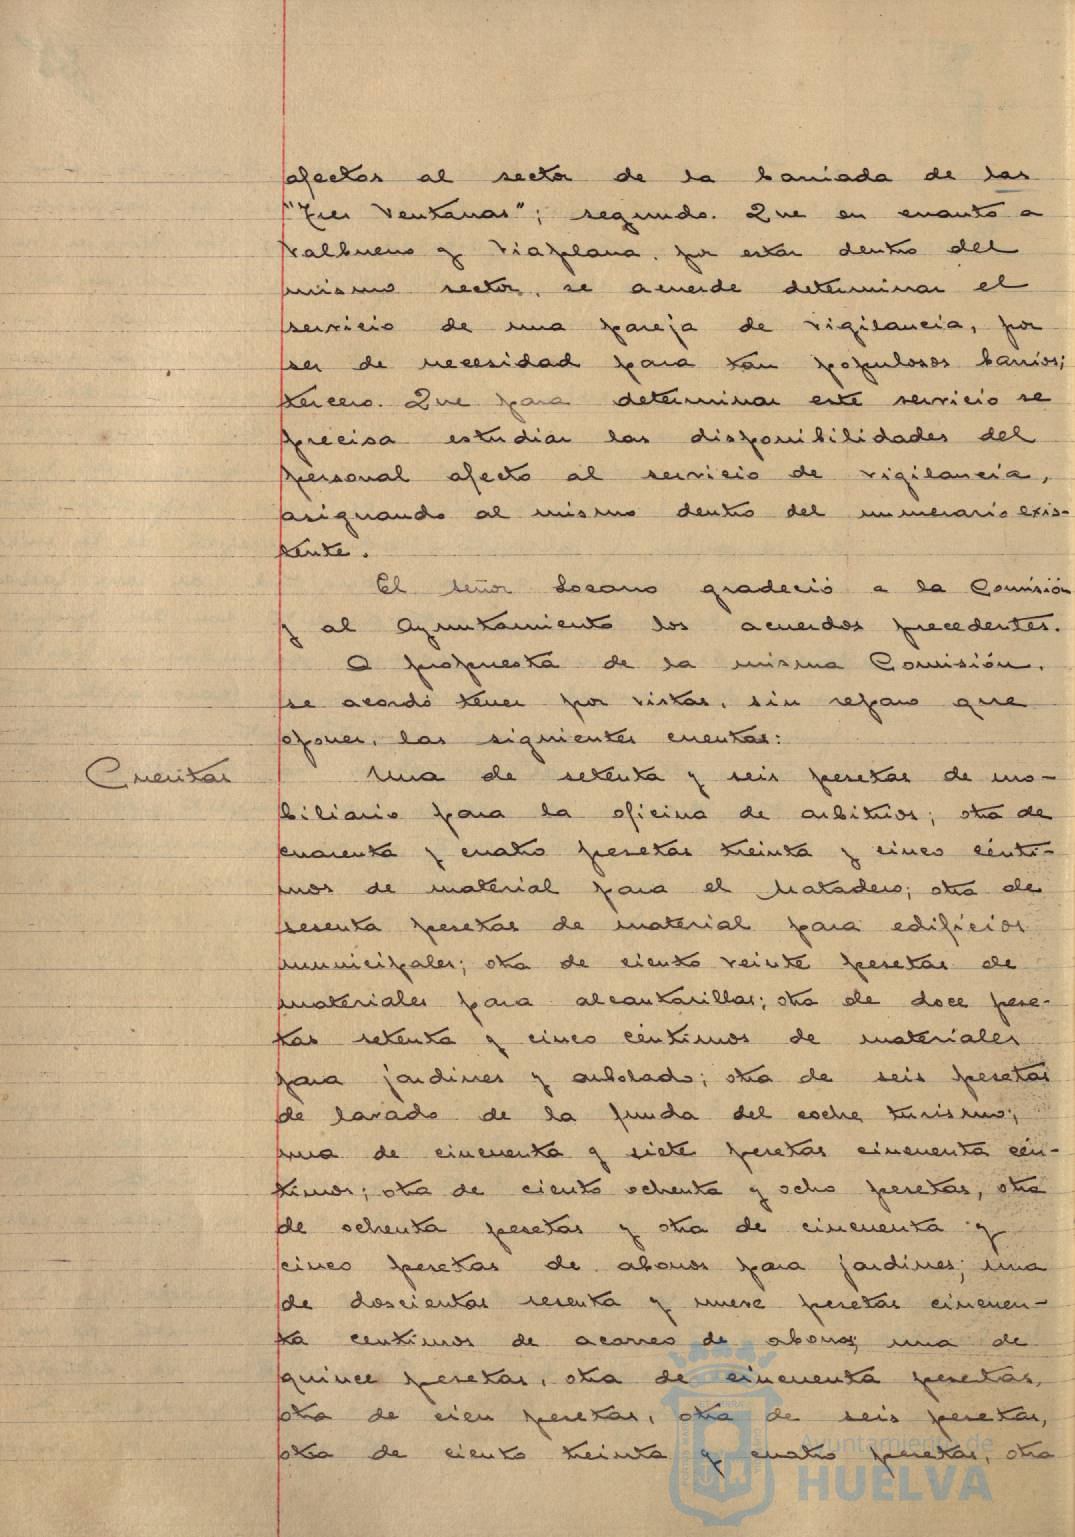 afectos al sector de la barriada de las
"Tres Ventanas"; segundo. Que en cuanto a
Valbueno y Viaplana, por estar dentro del
mismo sector, se acuerde determinar el
servicio de una pareja de vigilancia, por
ser de necesidad para tan populosos barrios;
tercero. Que para determinar este servicio se
precisa estudiar las disponibilidades del
personal afecto al servicio de vigilancia,
asignando al mismo dentro del numerario exis-
tente.
El señor Locano gradeció a la Comisión
y al Ayuntamiento los acuerdos precedentes.
A propuesta de la misma Comisión,
se acordó tener por vistas, sin reparo que
oponer, las siguientes cuentas:
Cuentas
Una de setenta y seis pesetas de mo-
biliario para la oficina de arbitrios; otra de
cuarenta y cuatro pesetas treinta y cinco cénti-
mos de material para el Matadero; otra de
sesenta pesetas de material para edificios
municipales; otra de ciento veinte pesetas de
materiales para alcantarillas; otra de doce pese-
tas setenta y cinco céntimos de materiales
para jardines y arbolado; otra de seis pesetas
de lavado de la funda del coche turismo;
una de cincuenta y siete pesetas cincuenta cén-
timos; otra de ciento ochenta y ocho pesetas, otra
de ochenta pesetas y otra de cincuenta y
cinco pesetas de abonos para jardines; una
de doscientas sesenta y nueve pesetas cincuen-
ta centimos de acarreo de abonos; una de
quince pesetas, otra de cincuenta pesetas,
otra de cien pesetas, otra de seis pesetas,
otra de ciento treinta y cuatro pesetas, otra
Ayuntamiento de
HUELVA